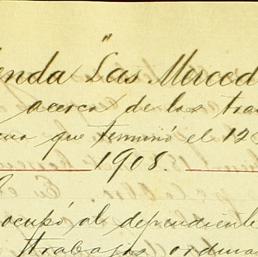 enda "Las Merced
acerca de los tra
que terminó el 12
1908.
ocupó al dependiente
trabajos ordina